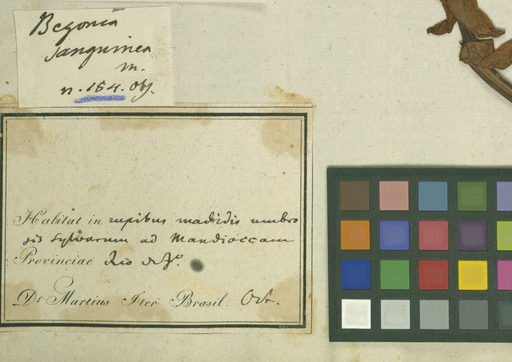 Begonia
sanguinea
m.
n. 154. Obs.
Habitat in rupibus madidis umbro
sis sylvarum ad Mandioccam
Provinciae Rio de J°.
Dr. Martius Iter Brasil. Oct.